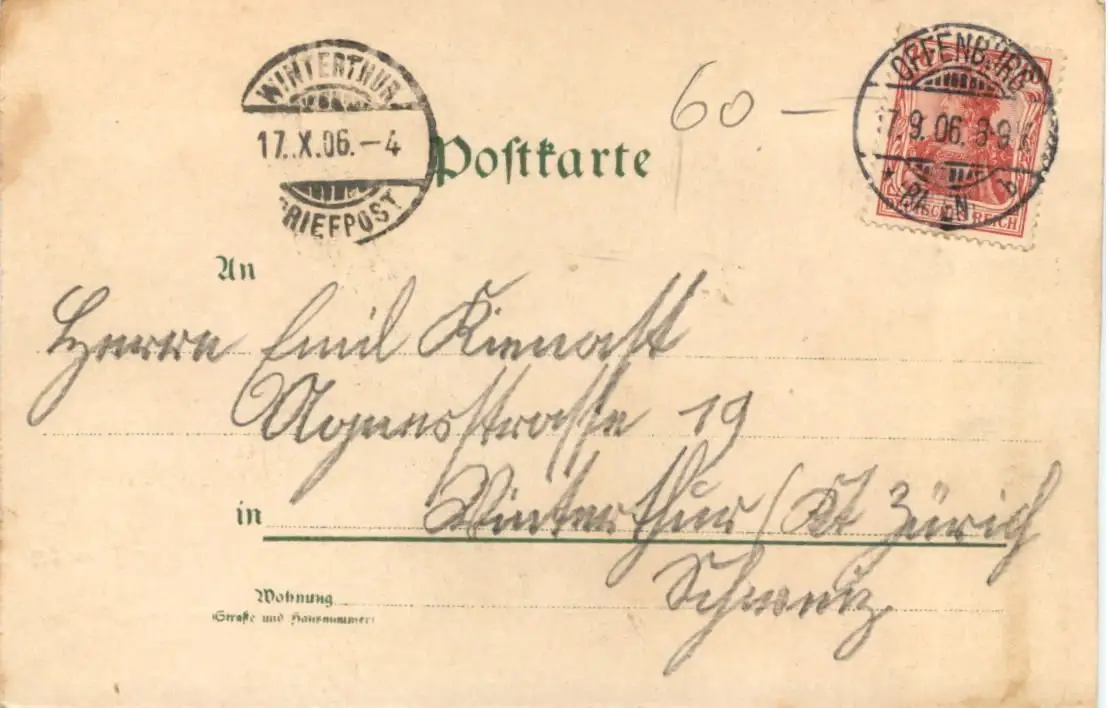 WINTERTHUR
17.X.06.–4
BRIEFPOST
Postkarte
60 –
OFFENBURG
7.9.06. 8-9
b
REICH
An
Herrn Emil Kienast
Agnesstrasse 19
in
Winterthur / Kt Zürich
Schweiz
Wohnung
(Straße und Hausnummer)